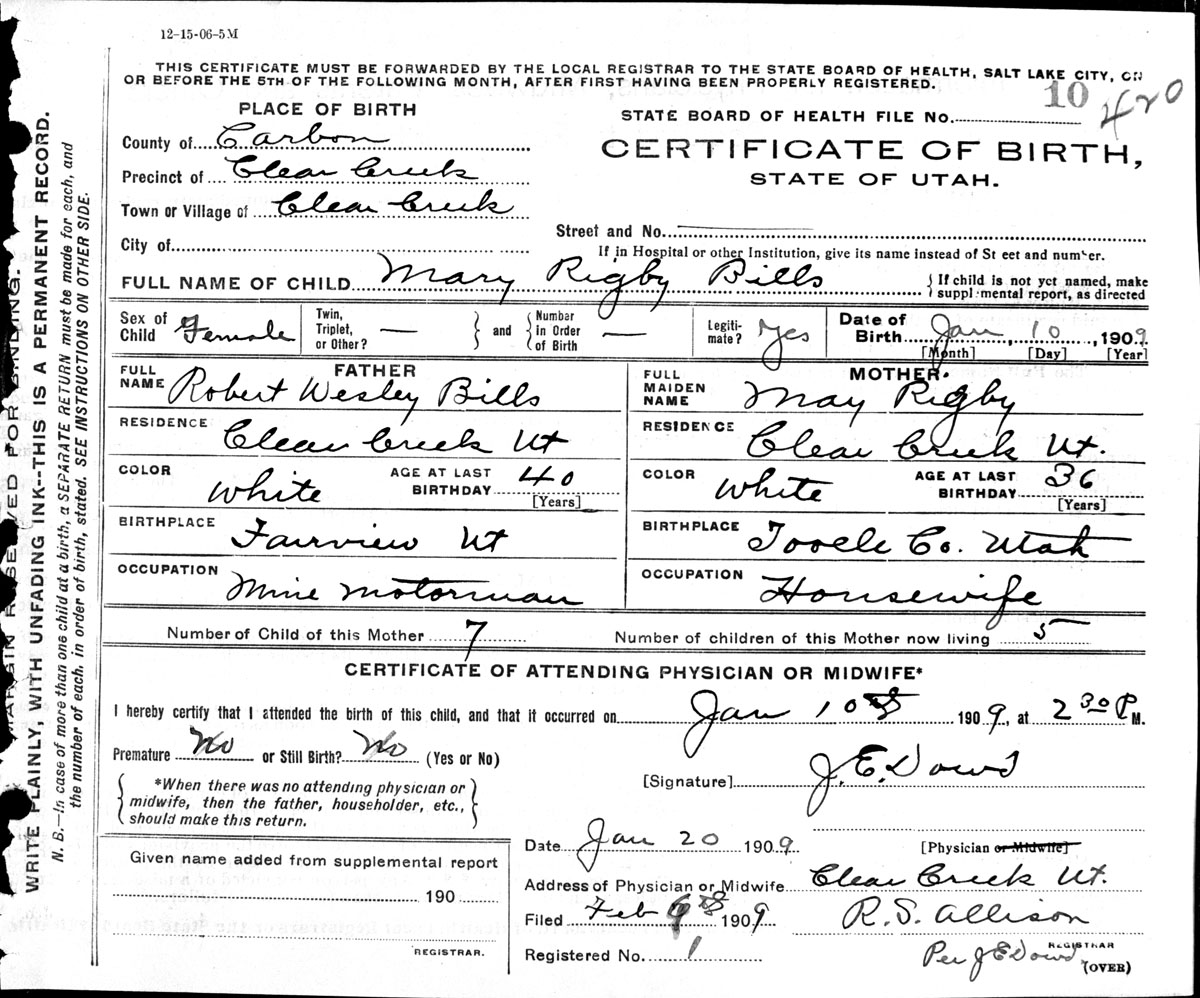 12-15-06-5M
THIS CERTIFICATE MUST BE FORWARDED BY THE LOCAL REGISTRAR TO THE STATE BOARD OF HEALTH, SALT LAKE CITY, ON
OR BEFORE THE 5TH OF THE FOLLOWING MONTH, AFTER FIRST HAVING BEEN PROPERLY REGISTERED.
PLACE OF BIRTH
County of Carbon
Precinct of Clear Creek
Town or Village of Clear Creek
City of
STATE BOARD OF HEALTH FILE No. 10 420
CERTIFICATE OF BIRTH,
STATE OF UTAH.
Street and No.
If in Hospital or other Institution, give its name instead of St eet and number.
FULL NAME OF CHILD Mary Rigby Bills
If child is not yet named, make
suppl mental report, as directed
Sex of Child Female
Twin, Triplet, or Other? —
and
Number in Order of Birth —
Legiti-mate? Yes
Date of Birth Jan 10, 1909
[Month] [Day] [Year]
FATHER
FULL NAME Robert Wesley Bills
RESIDENCE Clear Creek Ut
COLOR White AGE AT LAST BIRTHDAY 40 [Years]
BIRTHPLACE Fairview Ut
OCCUPATION Mine Motorman
MOTHER.
FULL MAIDEN NAME May Rigby
RESIDENCE Clear Creek Ut.
COLOR White AGE AT LAST BIRTHDAY 36 [Years]
BIRTHPLACE Tooele Co. Utah
OCCUPATION Housewife
Number of Child of this Mother 7 Number of children of this Mother now living 5
CERTIFICATE OF ATTENDING PHYSICIAN OR MIDWIFE*
I hereby certify that I attended the birth of this child, and that it occurred on Jan 10th 1909, at 2 30 P M.
Premature No or Still Birth? No (Yes or No)
*When there was no attending physician or
midwife, then the father, householder, etc.,
should make this return.
[Signature] J. E. Dowd
Given name added from supplemental report
190
REGISTRAR.
Date Jan 20 1909 [Physician or Midwife]
Address of Physician or Midwife Clear Creek Ut.
Filed Feb 9th 1909 R. S. Allison
REGISTRAR
Registered No. 1 Per J E Dowd
(OVER)
MARGIN RESERVED FOR BINDING.
WRITE PLAINLY, WITH UNFADING INK--THIS IS A PERMANENT RECORD.
N. B.—In case of more than one child at a birth, a SEPARATE RETURN must be made for each, and
the number of each, in order of birth, stated. SEE INSTRUCTIONS ON OTHER SIDE.